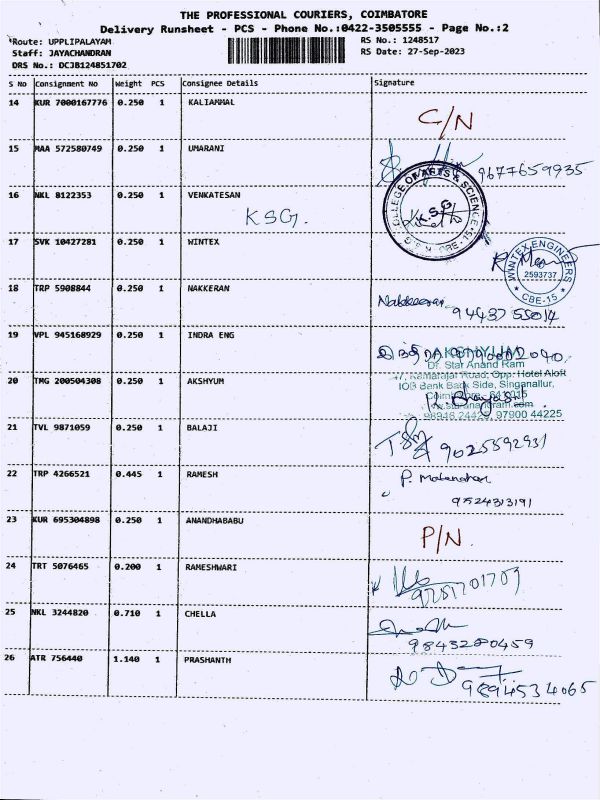 THE PROFESSIONAL COURIERS, COIMBATORE
Delivery Runsheet - PCS - Phone No.:0422-3505555 - Page No.:2
*Route: UPPLIPALAYAM
Staff: JAYACHANDRAN
DRS No.: DCJB124851702
RS No.: 1248517
RS Date: 27-Sep-2023
S No Consignment No Weight PCS Consignee Details Signature
14 KUR 7000167776 0.250 1 KALIAMMAL
C/N
15 MAA 572580749 0.250 1 UMARANI
9677659935
16 NKL 8122353 0.250 1 VENKATESAN
KSG.
COLLEGE OF ARTS & SCIENCE
K.S.G
CBE-15
17 SVK 10427281 0.250 1 WINTEX
WINTEX ENGINEERS
2593737
CBE-15
18 TRP 5908844 0.250 1 NAKKERAN
Nakkeeran
9443755014
19 VPL 945168929 0.250 1 INDRA ENG
இந்திரா
AKSHYUM
Dr. Star Anand Ram
47, Kamarajar Road, Opp: Hotel Aloft
20 TMG 200504308 0.250 1 AKSHYUM
IOB Bank Back Side, Singanallur,
Coimbatore - 641015
98946 24422, 97900 44225
21 TVL 9871059 0.250 1 BALAJI
9025592931
22 TRP 4266521 0.445 1 RAMESH
9524313191
23 KUR 695304898 0.250 1 ANANDHABABU
P/N.
24 TRT 5076465 0.200 1 RAMESHWARI
25 NKL 3244820 0.710 1 CHELLA
9843280459
26 ATR 756440 1.140 1 PRASHANTH
9894534065